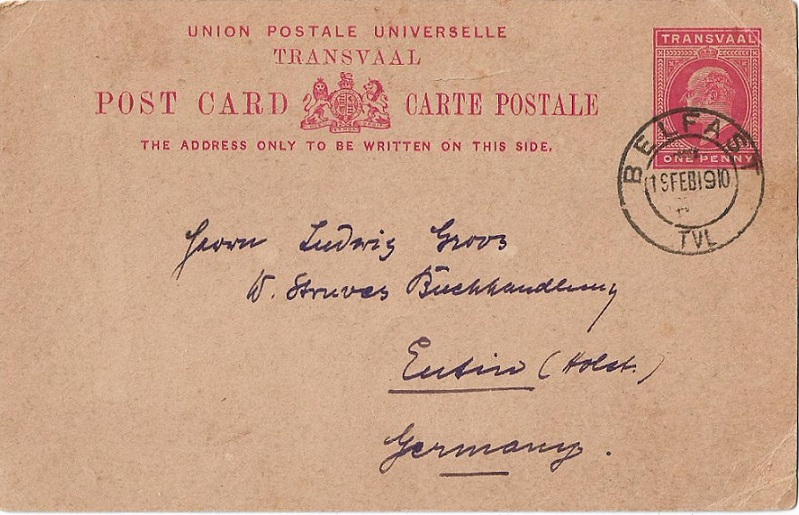 UNION POSTALE UNIVERSELLE
TRANSVAAL
POST CARD CARTE POSTALE
THE ADDRESS ONLY TO BE WRITTEN ON THIS SIDE.
TRANSVAAL
ONE PENNY
BELFAST
19FEB1910
TVL
Herrn Ludwig Groos
W. Struves Buchhandlung
Eutin (Holst.)
Germany.